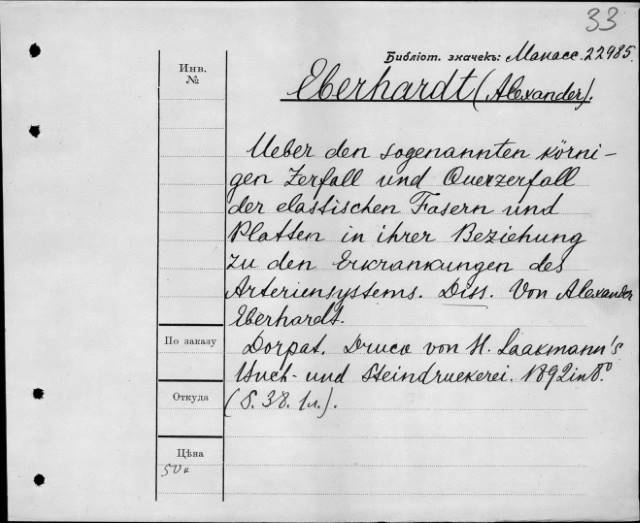 33
Библіот. значекъ: Манасс. 22985.
Инв.
№
Eberhardt (Alexander).
Ueber den sogenannten körni-
gen Zerfall und Querzerfall
der elastischen Fasern und
Platten in ihrer Beziehung
zu den Erkrankungen des
Arteriensystems. Diss. Von Alexander
Eberhardt.
По заказу
Dorpat. Druck von H. Laakmann's
Buch- und Steindruckerei. 1892 in 8.°
Откуда
(S. 38. 1 л.).
Цѣна
50к